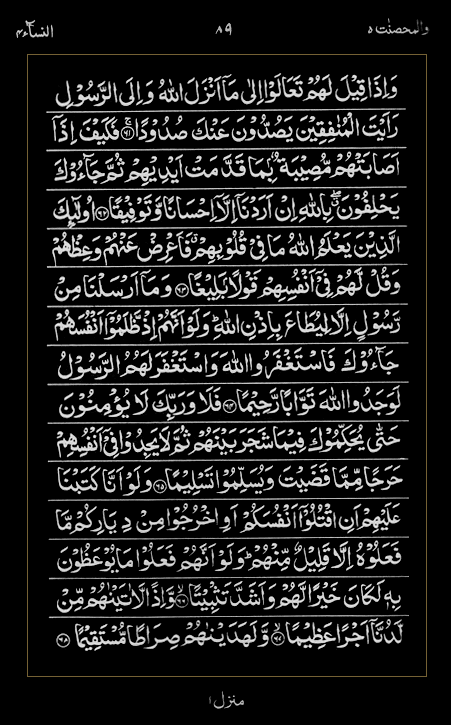 والمحصنٰت ٥ ٨٩ النسآء ٤
وَاِذَا قِيْلَ لَهُمْ تَعَالَوْا اِلٰى مَاۤ اَنْزَلَ اللّٰهُ وَاِلَى الرَّسُوْلِ
رَاَيْتَ الْمُنٰفِقِيْنَ يَصُدُّوْنَ عَنْكَ صُدُوْدًا ۚ‏﴿٦١﴾ فَكَيْفَ اِذَاۤ
اَصَابَتْهُمْ مُّصِيْبَةٌۢ بِمَا قَدَّمَتْ اَيْدِيْهِمْ ثُمَّ جَآءُوْكَ
يَحْلِفُوْنَ ۖۗ بِاللّٰهِ اِنْ اَرَدْنَاۤ اِلَّاۤ اِحْسَانًا وَّتَوْفِيْقًا ﴿٦٢﴾ اُولٰٓئِكَ
الَّذِيْنَ يَعْلَمُ اللّٰهُ مَا فِىْ قُلُوْبِهِمْ ۗ فَاَعْرِضْ عَنْهُمْ وَعِظْهُمْ
وَقُلْ لَّهُمْ فِىْۤ اَنْفُسِهِمْ قَوْلًاۢ بَلِيْغًا ﴿٦٣﴾ وَمَاۤ اَرْسَلْنَا مِنْ
رَّسُوْلٍ اِلَّا لِيُطَاعَ بِاِذْنِ اللّٰهِ ؕ وَلَوْ اَنَّهُمْ اِذْ ظَّلَمُوْۤا اَنْفُسَهُمْ
جَآءُوْكَ فَاسْتَغْفَرُوا اللّٰهَ وَاسْتَغْفَرَ لَهُمُ الرَّسُوْلُ
لَوَجَدُوا اللّٰهَ تَوَّابًا رَّحِيْمًا ﴿٦٤﴾ فَلَا وَرَبِّكَ لَا يُؤْمِنُوْنَ
حَتّٰى يُحَكِّمُوْكَ فِيْمَا شَجَرَ بَيْنَهُمْ ثُمَّ لَا يَجِدُوْا فِىْۤ اَنْفُسِهِمْ
حَرَجًا مِّمَّا قَضَيْتَ وَيُسَلِّمُوْا تَسْلِيْمًا ﴿٦٥﴾ وَلَوْ اَنَّا كَتَبْنَا
عَلَيْهِمْ اَنِ اقْتُلُوْۤا اَنْفُسَكُمْ اَوِ اخْرُجُوْا مِنْ دِيَارِكُمْ مَّا
فَعَلُوْهُ اِلَّا قَلِيْلٌ مِّنْهُمْ ؕ وَلَوْ اَنَّهُمْ فَعَلُوْا مَا يُوْعَظُوْنَ
بِهٖ لَكَانَ خَيْرًا لَّهُمْ وَاَشَدَّ تَثْبِيْتًا ۙ‏﴿٦٦﴾ وَّاِذًا لَّاٰتَيْنٰهُمْ مِّنْ
لَّدُنَّاۤ اَجْرًا عَظِيْمًا ۙ‏﴿٦٧﴾ وَّلَهَدَيْنٰهُمْ صِرَاطًا مُّسْتَقِيْمًا ﴿٦٨﴾
منزل ١